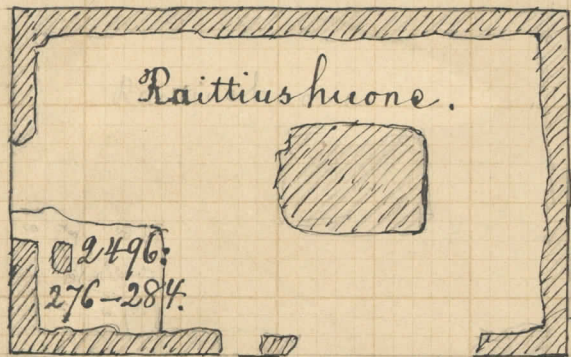 Raittiushuone.
2496:
276–284.